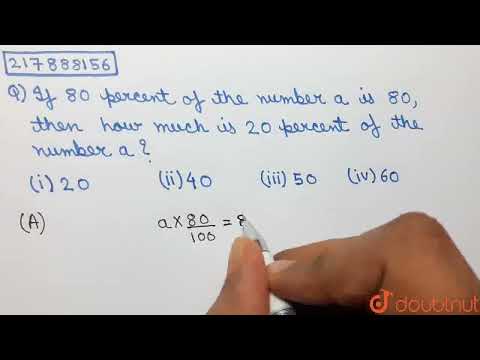 217888156
Q) If 80 percent of the number a is 80,
then how much is 20 percent of the
number a?
(i) 20 (ii) 40 (iii) 50 (iv) 60
(A) a × 80/100 =
doubtnut